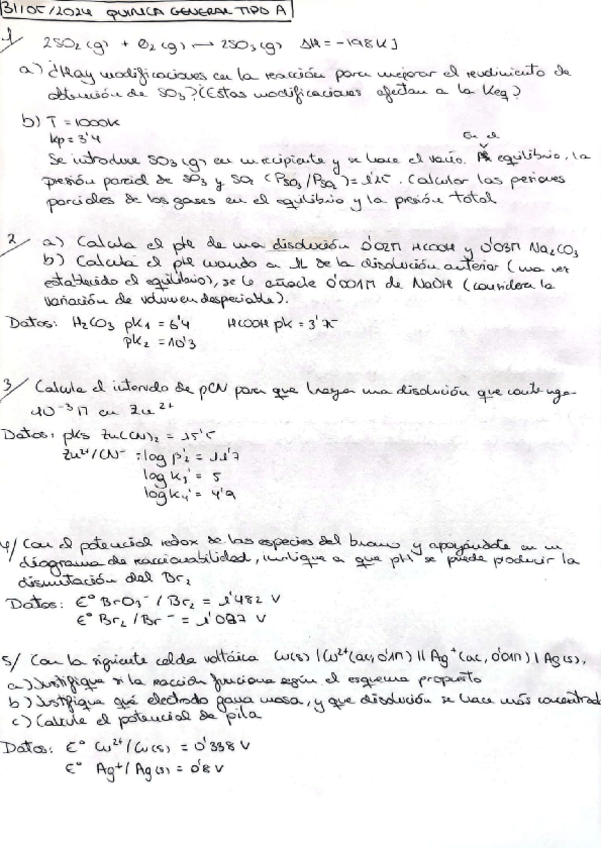 31/05/2024 QUIMICA GENERAL TIPO A
1/ 2SO₂(g) + O₂(g) → 2SO₃(g) ΔH = -198KJ
a) ¿Hay modificaciones en la reacción para mejorar el rendimiento de
obtención de SO₃? ¿Estas modificaciones afectan a la Keq?
b) T = 1000K
Kp = 3'4
Se introduce SO₃(g) en un recipiente y se hace el vacío. En el equilibrio, la
presión parcial de SO₃ y SO₂ (P_SO₃/P_SO₂) = 1'25. Calcular las presiones
parciales de los gases en el equilibrio y la presión total
2/ a) Calcula el pH de una disolución 0'02M HCOOH y 0'03M Na₂CO₃
b) Calcula el pH cuando a 1L de la disolución anterior (una vez
establecido el equilibrio), se le añade 0'001M de NaOH (considera la
variación de volumen despreciable).
Datos: H₂CO₃ pK₁ = 6'4 HCOOH pK = 3'75
pK₂ = 10'3
3/ Calcule el intervalo de pCN para que haya una disolución que contenga
10⁻³M en Zn²⁺
Datos: pKs Zn(CN)₂ = 15'5
Zn²⁺/CN⁻ = log β₂' = 11'7
log K₃' = 5
log K₄' = 4'9
4/ Con el potencial redox de las especies del bromo y apoyándote en un
diagrama de reaccionabilidad, indique a que pH se puede producir la
dismutación del Br₂
Datos: E° BrO₃⁻ / Br₂ = 1'482 V
E° Br₂ / Br⁻ = 1'087 V
5/ Con la siguiente celda voltáica Cu(s) | Cu²⁺(ac, 0'1M) || Ag⁺(ac, 0'01M) | Ag(s),
a) Justifique si la reacción funciona según el esquema propuesto
b) Justifique qué electrodo gana masa, y que disolución se hace más concentrada
c) Calcule el potencial de pila
Datos: E° Cu²⁺/Cu(s) = 0'338 V
E° Ag⁺/Ag(s) = 0'8 V